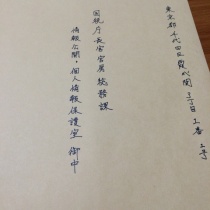 東京都千代田区霞が関3丁目1番1号
国税庁長官官房総務課
情報公開・個人情報保護室 御中